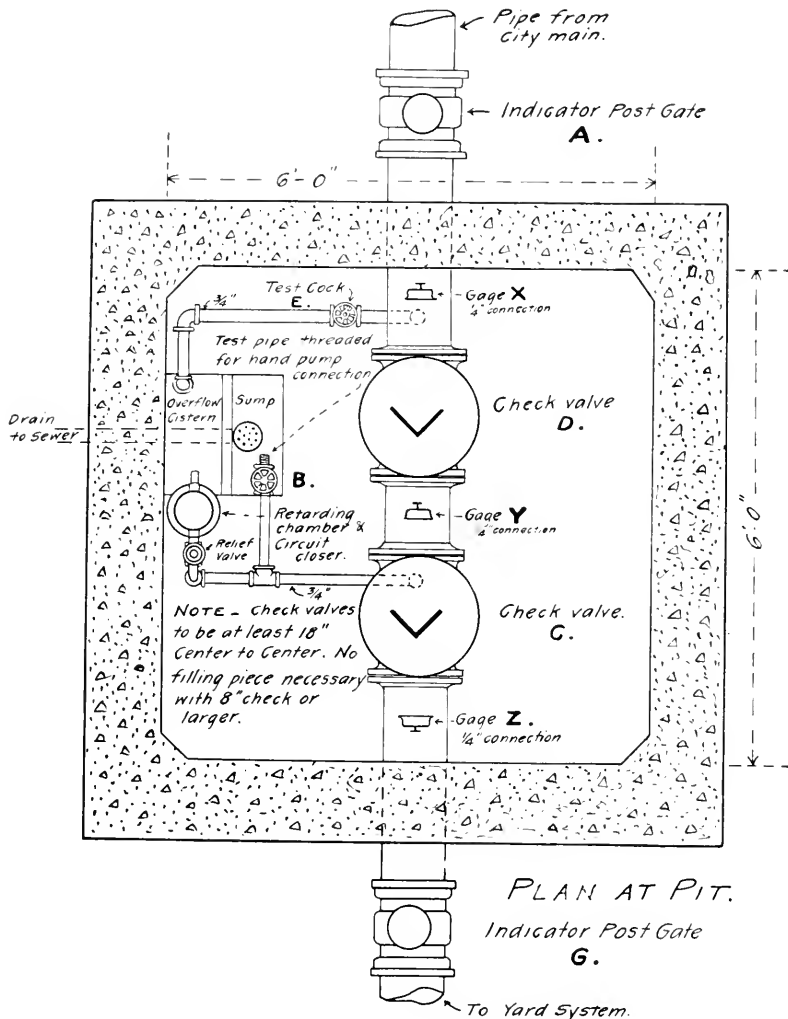 Pipe from
City main.
Indicator Post Gate
A.
6'-0"
Test Cock
E.
3/4"
Gage X
1/4" connection
Test pipe threaded
for hand pump
connection
Overflow
Cistern
Sump
Drain
to Sewer
Check valve
D.
B.
Gage Y
1/4" connection
Retarding
chamber &
Circuit
closer.
Relief
Valve
3/4"
6'0"
NOTE - Check valves
to be at least 18"
Center to Center. No
filling piece necessary
with 8" check or
larger.
Check valve.
C.
Gage Z.
1/4" connection
PLAN AT PIT.
Indicator Post Gate
G.
To Yard System.